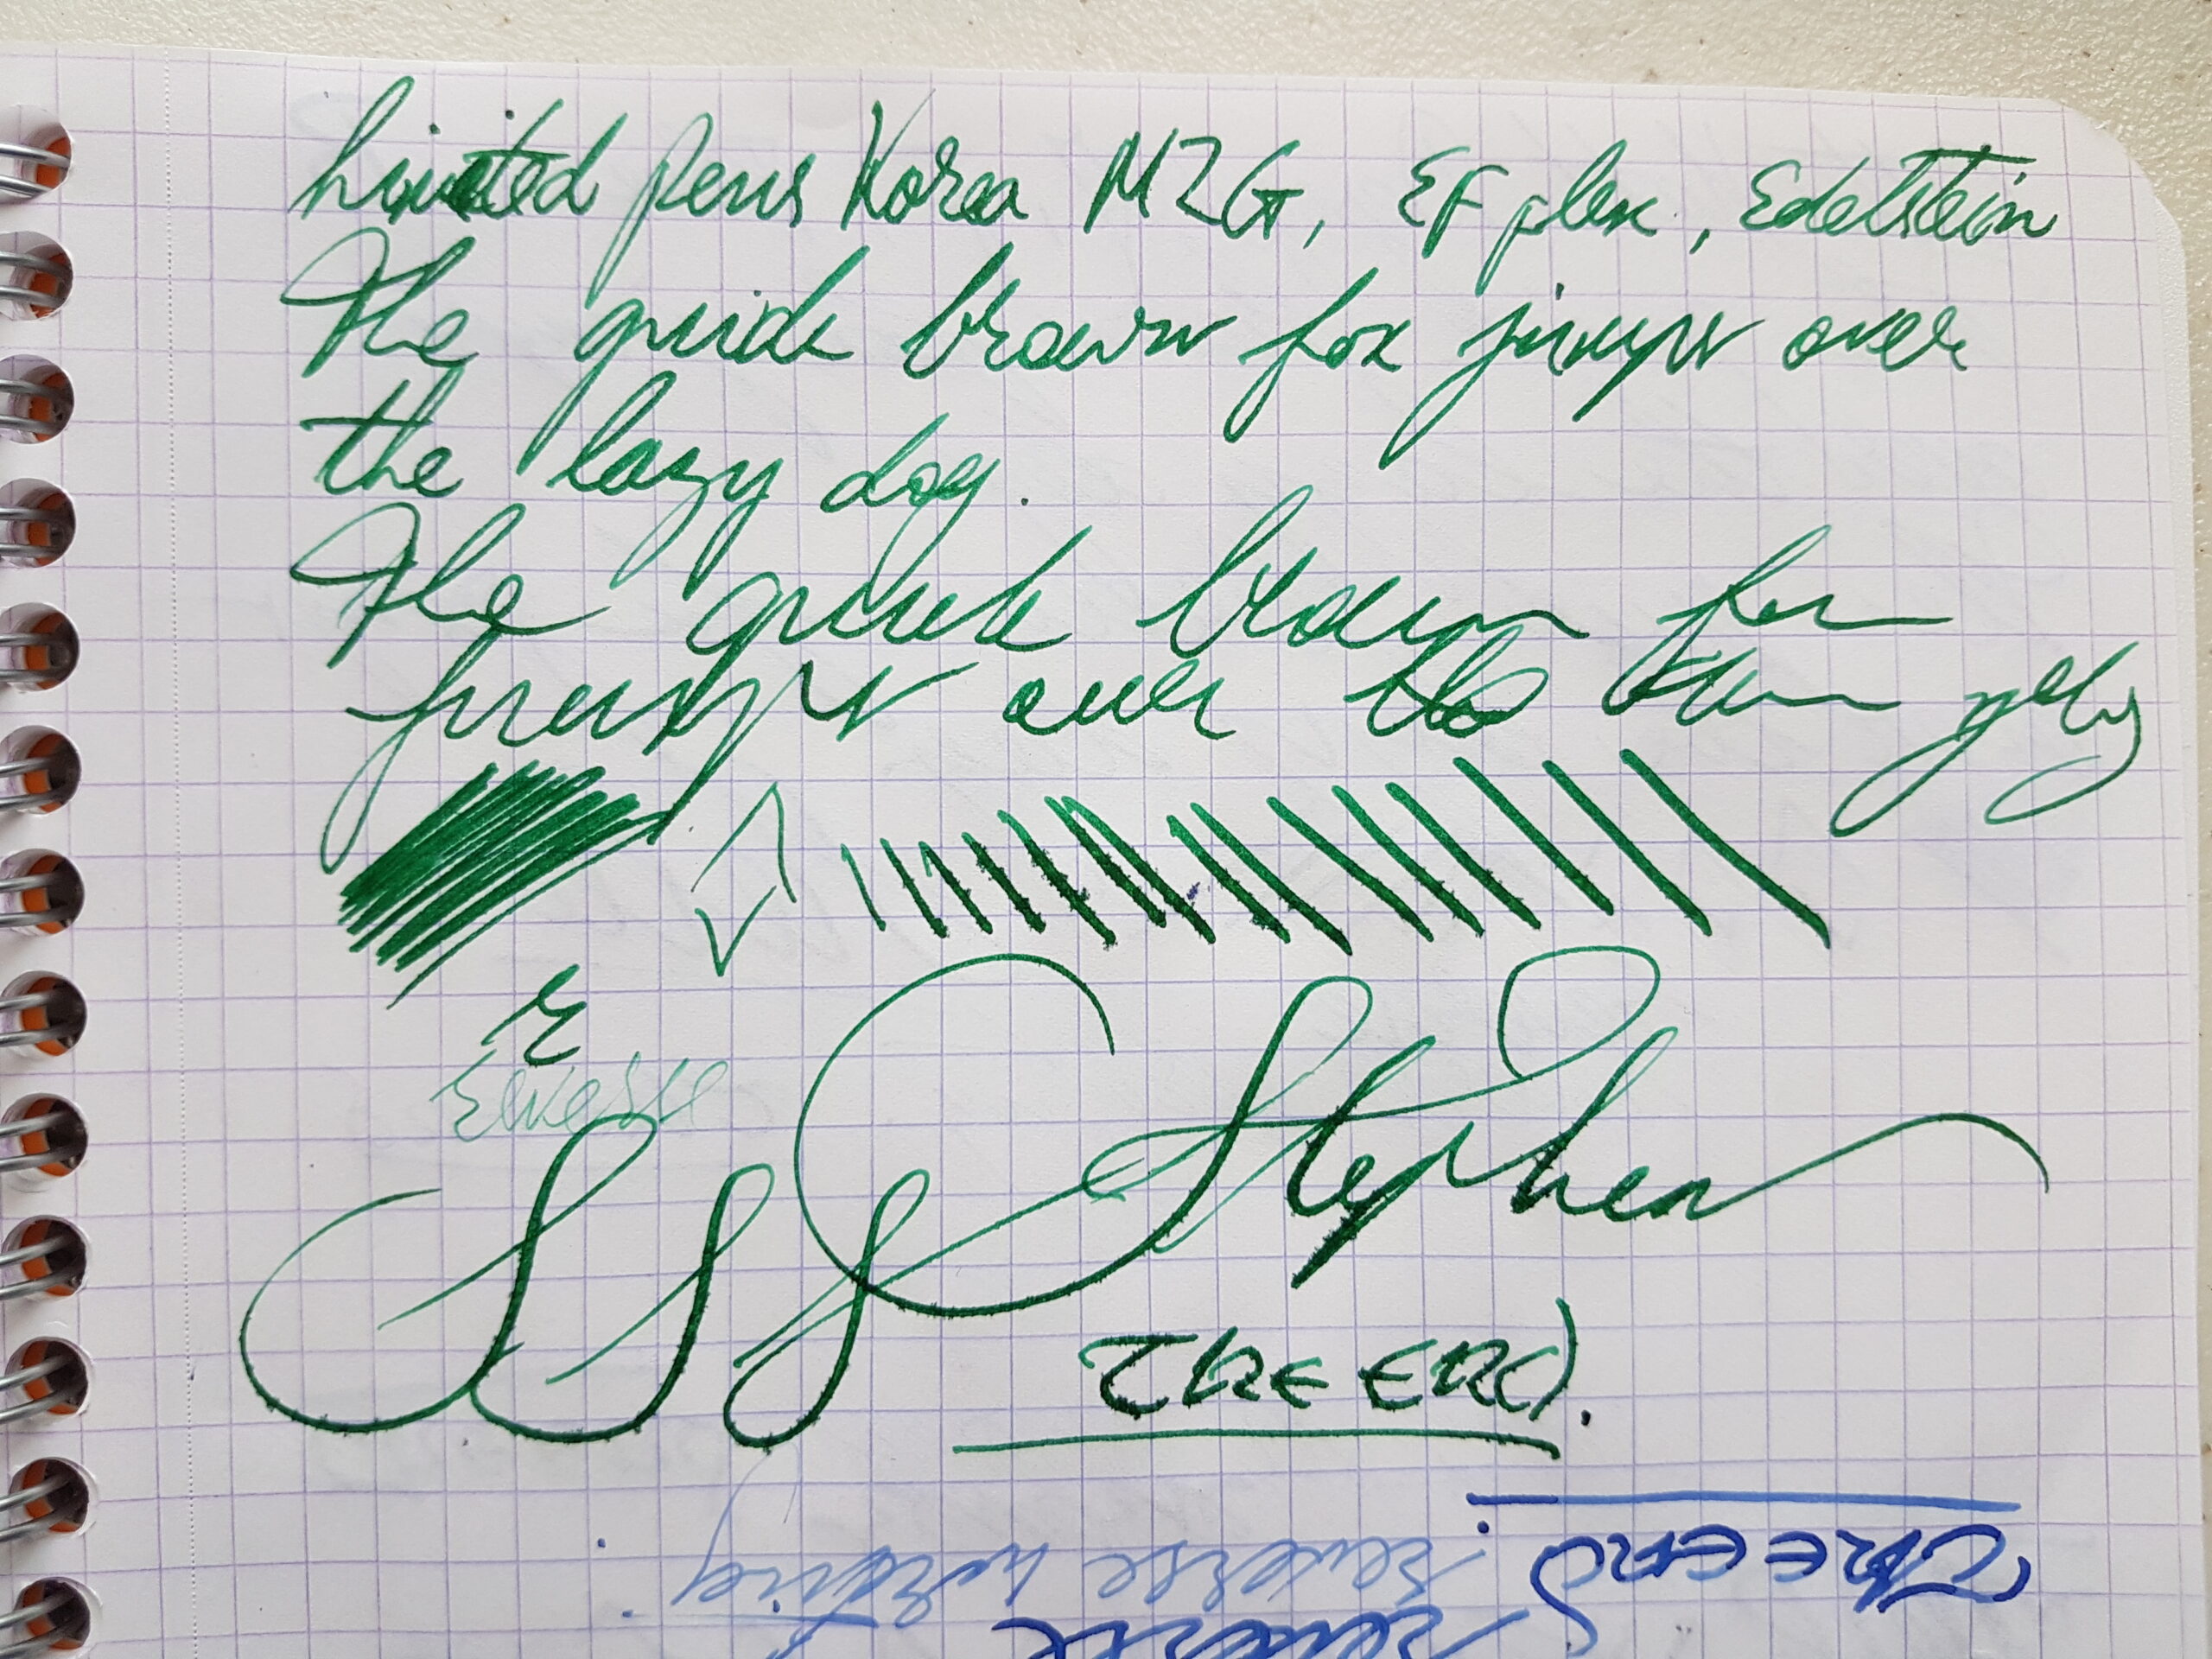 Limited pens Korea M2G, EF flex, Edelstein
The quick brown fox jumps over
the lazy dog.
The quick brown fox
jumps over the
Reverse
Stephen
THE END.
THE END
Reverse writing.
Reverse